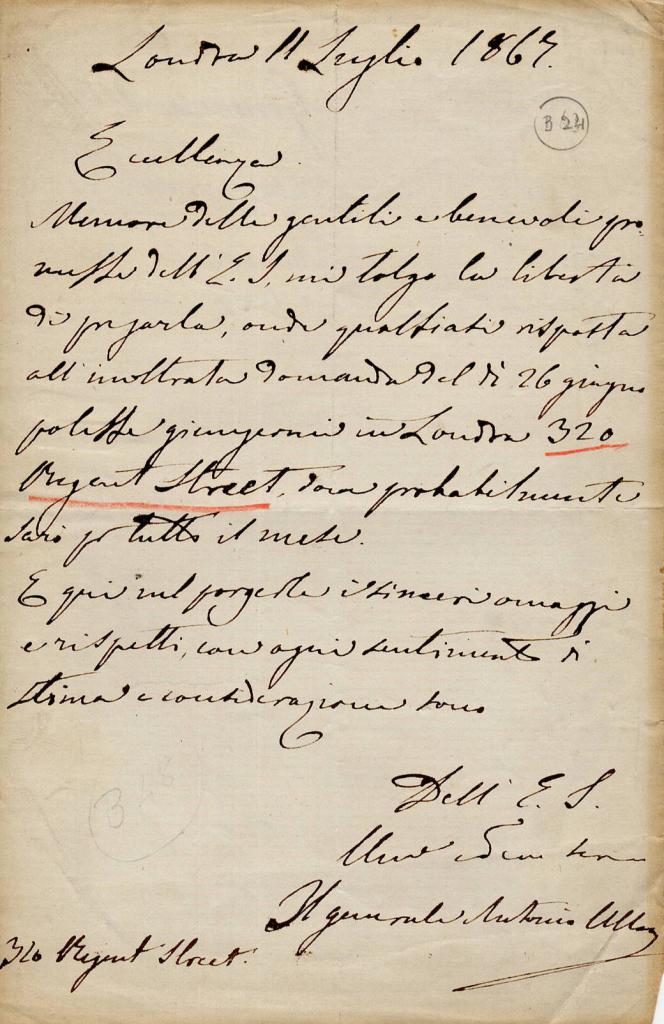 Londra 11 Luglio 1867.
B 24
Eccellenza
Memore delle gentili e benevoli pro
messe dell' E. S. mi tolgo la libertà
di pregarla, onde qualsiasi risposta
all' inoltrata domanda del dì 26 giugno
potesse giungermi in Londra 320
Regent Street, dove probabilmente
sarò per tutto il mese.
E qui nel porgerle i sinceri omaggi
e rispetti, con ogni sentimento di
stima e considerazione sono
Dell' E. S.
Il generale Antonio
320 Regent Street.